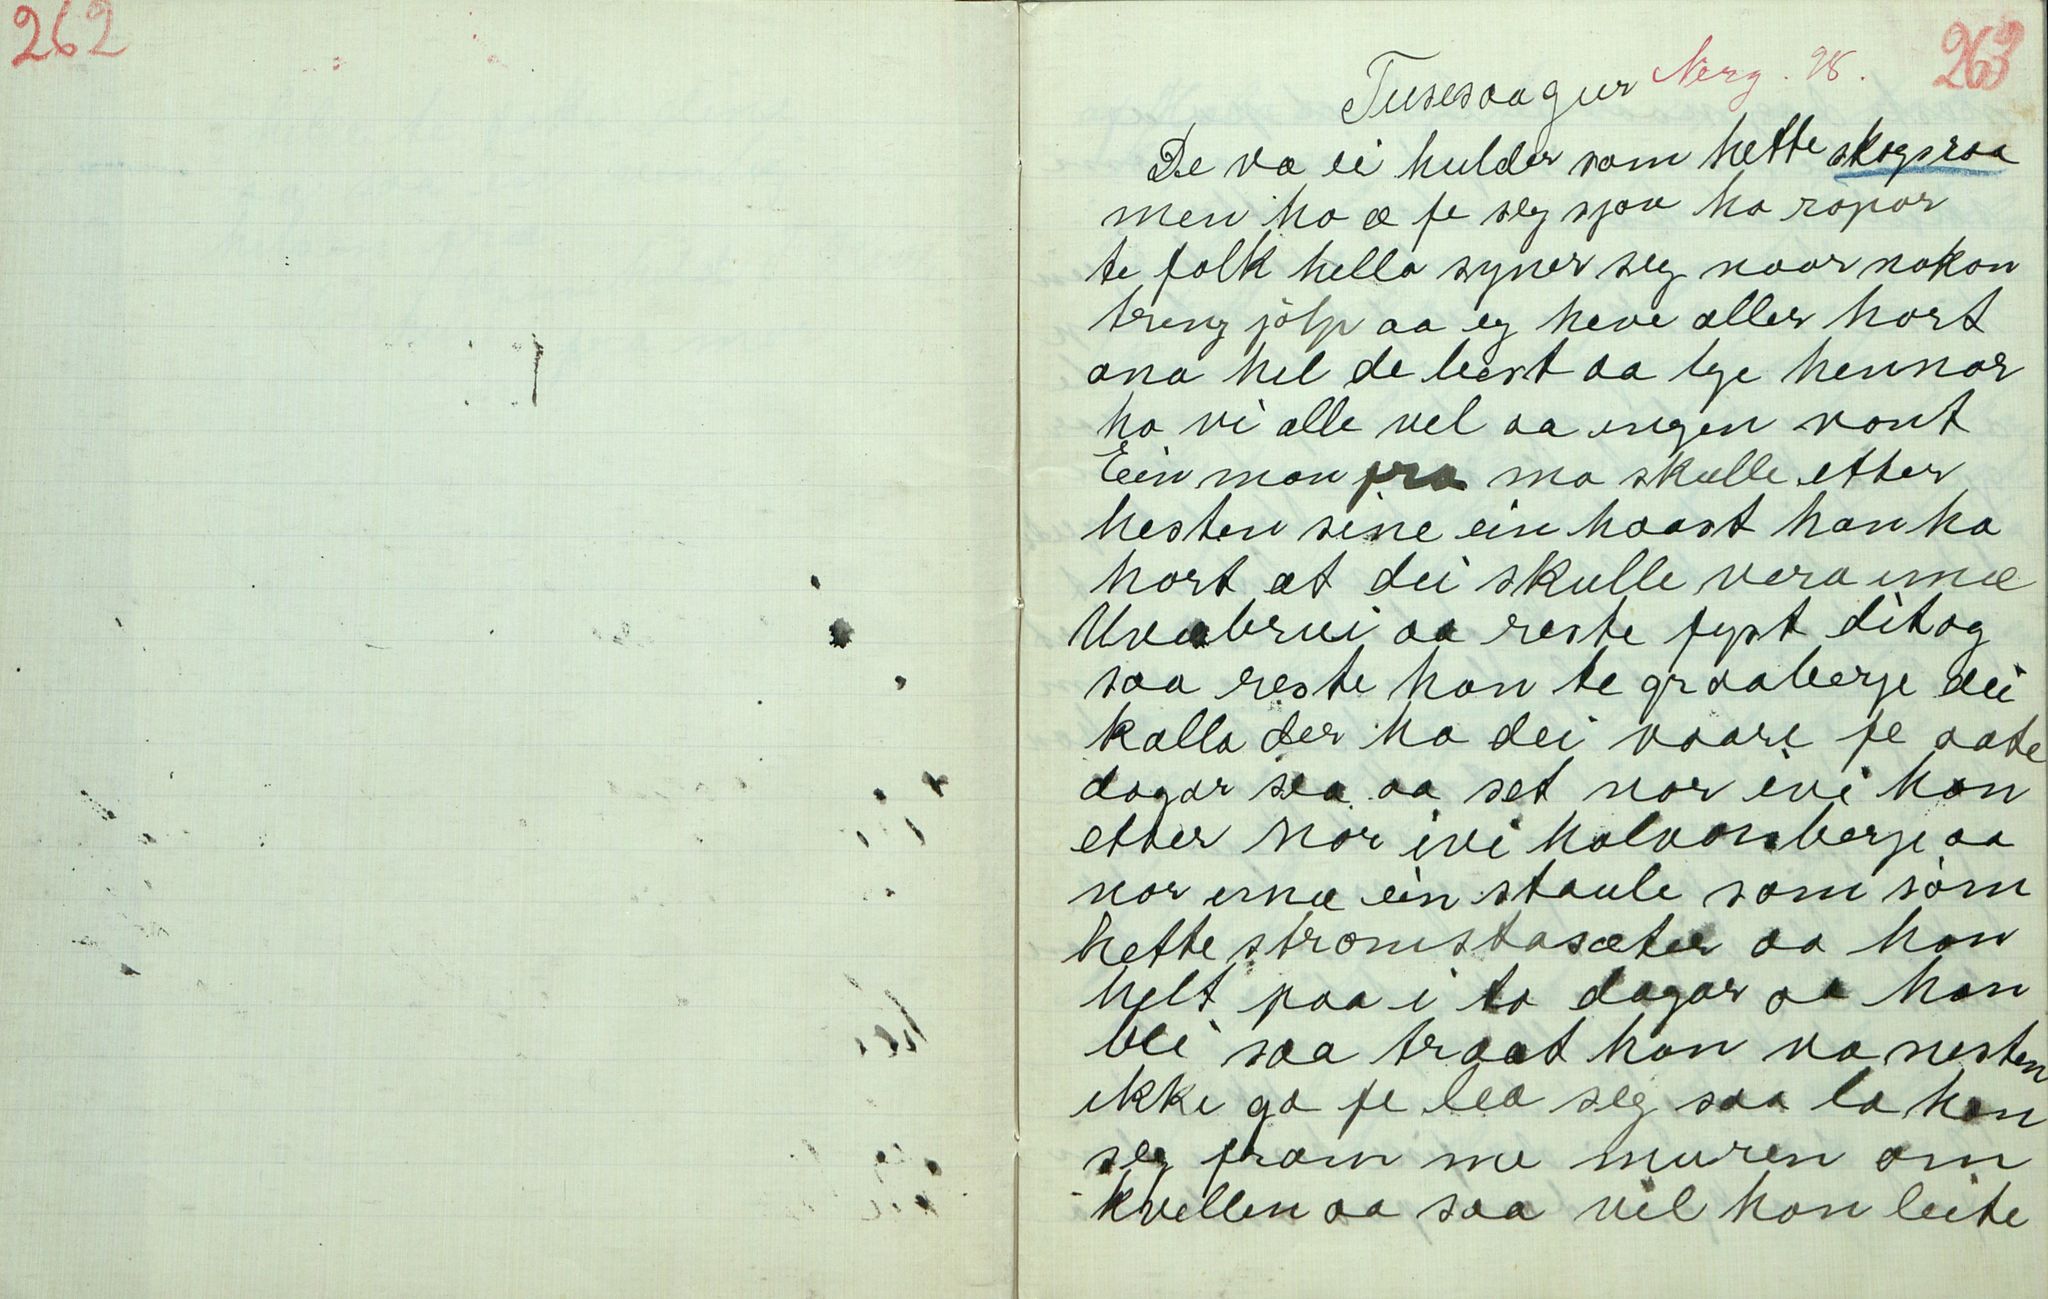 262
263
Tusesoagur Nerg. 28.
De va ei hulder som hette skogsraa
men ho æ fe seg sjøv ho ropar
te folk hella syner seg naar nokon
treng jolp aa eg heve aller hort
ana hel de best aa lye hennar
ho vi alle vel aa ingen vont
Ein mon fra mo skulle etter
hesten sine ein haast han ha
hort at dei skulle vera inne
Uvabrui aa reste fyst ditog
saa reste han te graaberje dei
kalla der ha dei vaare fe aate
dagar sea aa set nor ivi han
etter nor ivi halvonsberje aa
nor inne ein staule som som
hette stromstasæter aa han
helt paa i to dagar aa han
blei saa traat han va nesten
ikki go fe lea seg saa la han
seg fram me muren om
kvellen aa saa vil han leite